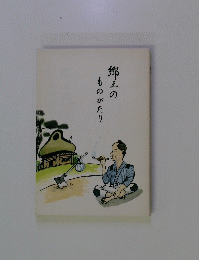 郷土の
ものがたり